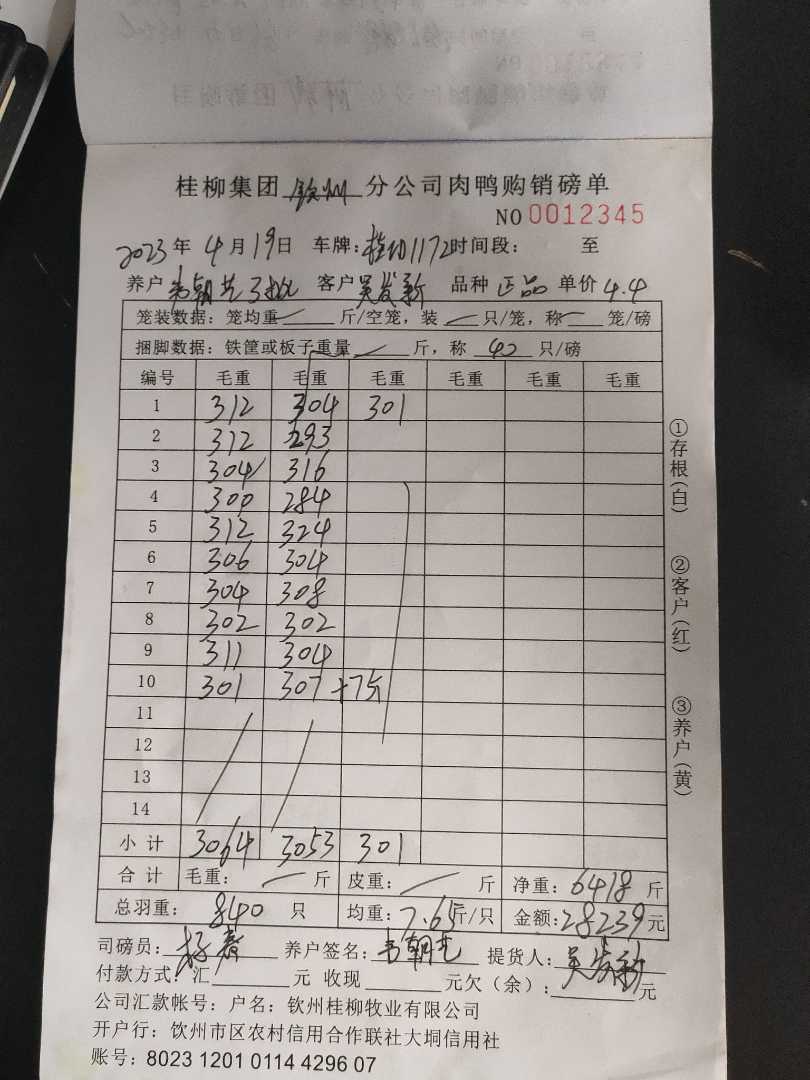 桂柳集团 钦州 分公司肉鸭购销磅单
NO 0012345
2023 年 4 月 19 日 车牌: 1172 时间段: 至
养户 韦朝艺 3批 客户 吴发新 品种 正品 单价 4.4
笼装数据: 笼均重 斤/空笼, 装 只/笼, 称 笼/磅
捆脚数据: 铁筐或板子重量 斤, 称 40 只/磅
编号 毛重 毛重 毛重 毛重 毛重 毛重
1 312 304 301
2 312 293
3 304 316
4 300 284
5 312 324
6 306 304
7 304 308
8 302 302
9 311 304
10 301 307
11
12
13
14
小计 3064 3053 301
合计 毛重: 斤 皮重: 斤 净重: 6418 斤
总羽重: 840 只 均重: 7.65 斤/只 金额: 28239 元
司磅员: 养户签名: 韦朝艺 提货人: 吴发新
付款方式: 汇 元 收现 元欠(余): 元
公司汇款帐号: 户名: 钦州桂柳牧业有限公司
开户行: 钦州市区农村信用合作联社大垌信用社
账号: 8023 1201 0114 4296 07
①存根(白)
②客户(红)
③养户(黄)